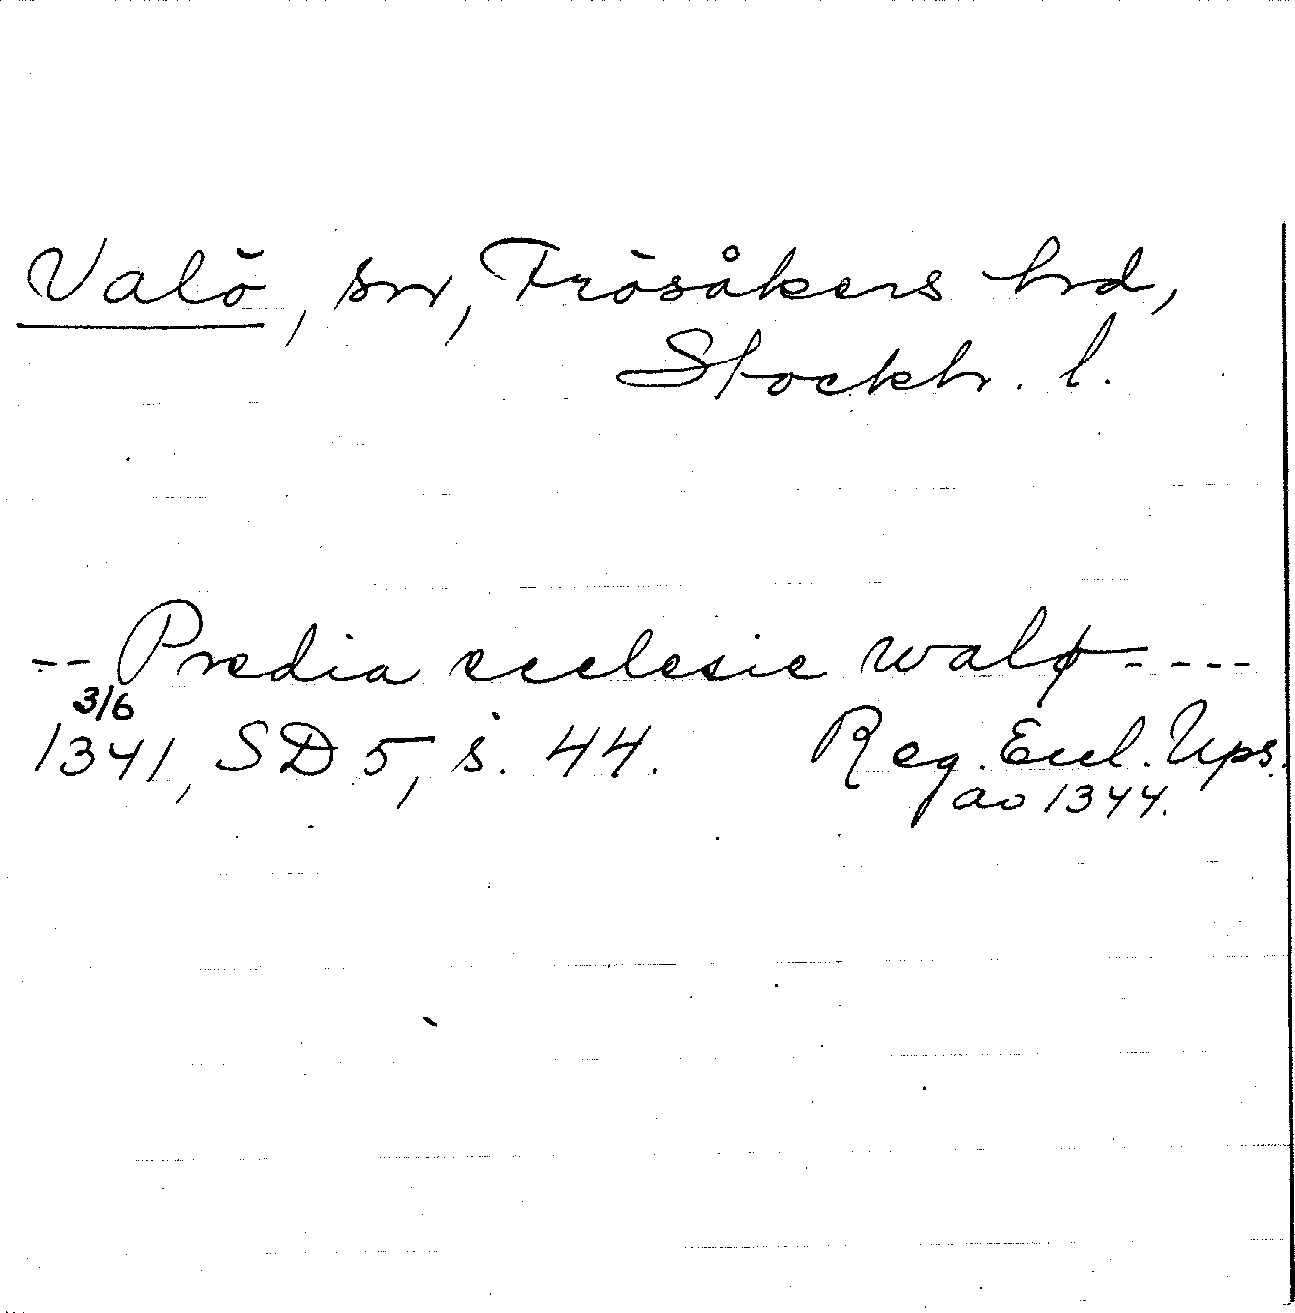 Valö, sn, Frösåkers hrd,
Stockh. l.
-- Predia ecclesie walø ----
3/6
1341, SD 5, s. 44. Reg. Eccl. Ups.
ao 1344.